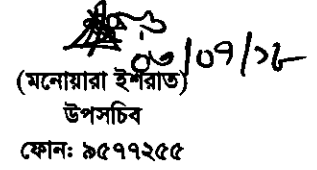 ০৩/০৭/১৮
(মনোয়ারা ইশরাত)
উপসচিব
ফোন: ৯৫৭৭২৫৫